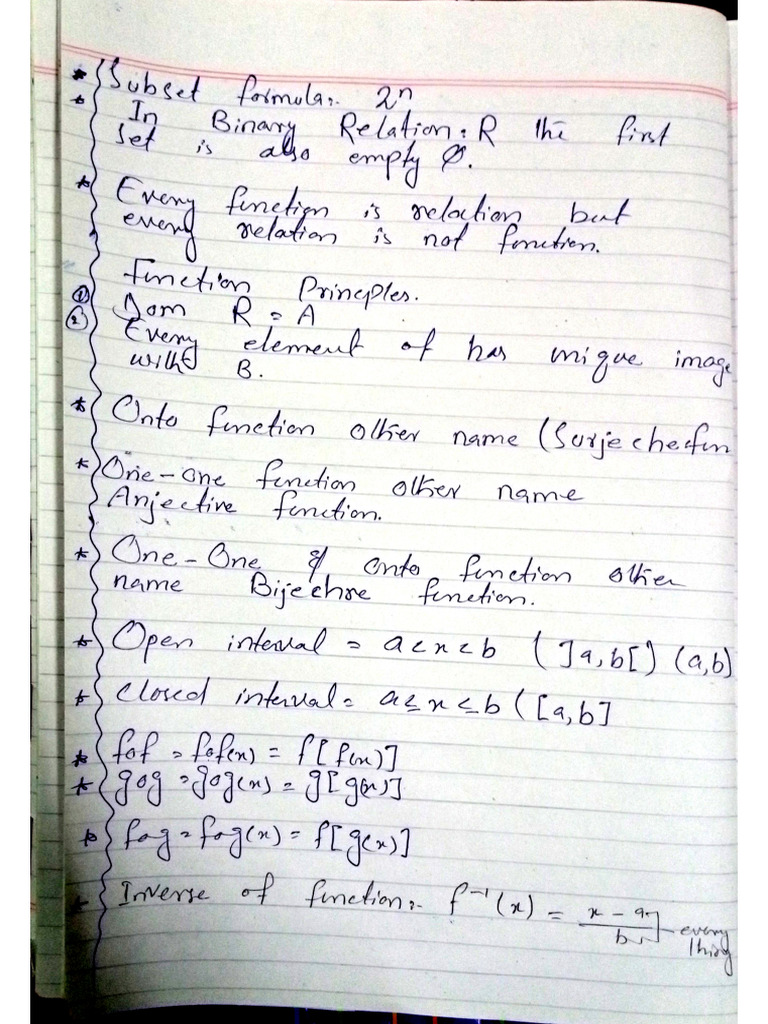 * Subset formula:- 2ⁿ
* In Binary Relation: R the first
set is also empty Ø.
* Every function is relation but
every relation is not function.
Function Principles.
① Dom R = A
② Every element of has unique image
with B.
* Onto function other name (Surjective fun
* One-one function other name
Anjective function.
* One-One & onto function other
name Bijective function.
* Open interval = a<x<b (]a,b[) (a,b)
* Closed interval = a≤x≤b ([a,b]
* fof = fof(x) = f[f(x)]
* gog = gog(x) = g[g(x)]
* fog = fog(x) = f[g(x)]
* Inverse of function:- f⁻¹(x) = x - a / b
every
thing